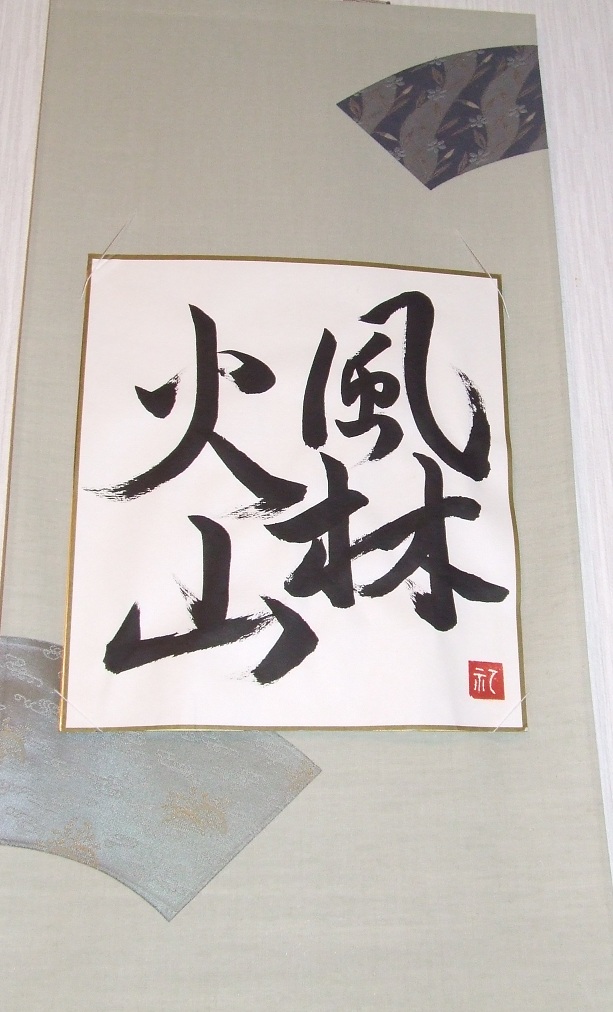 風林
火山
礼